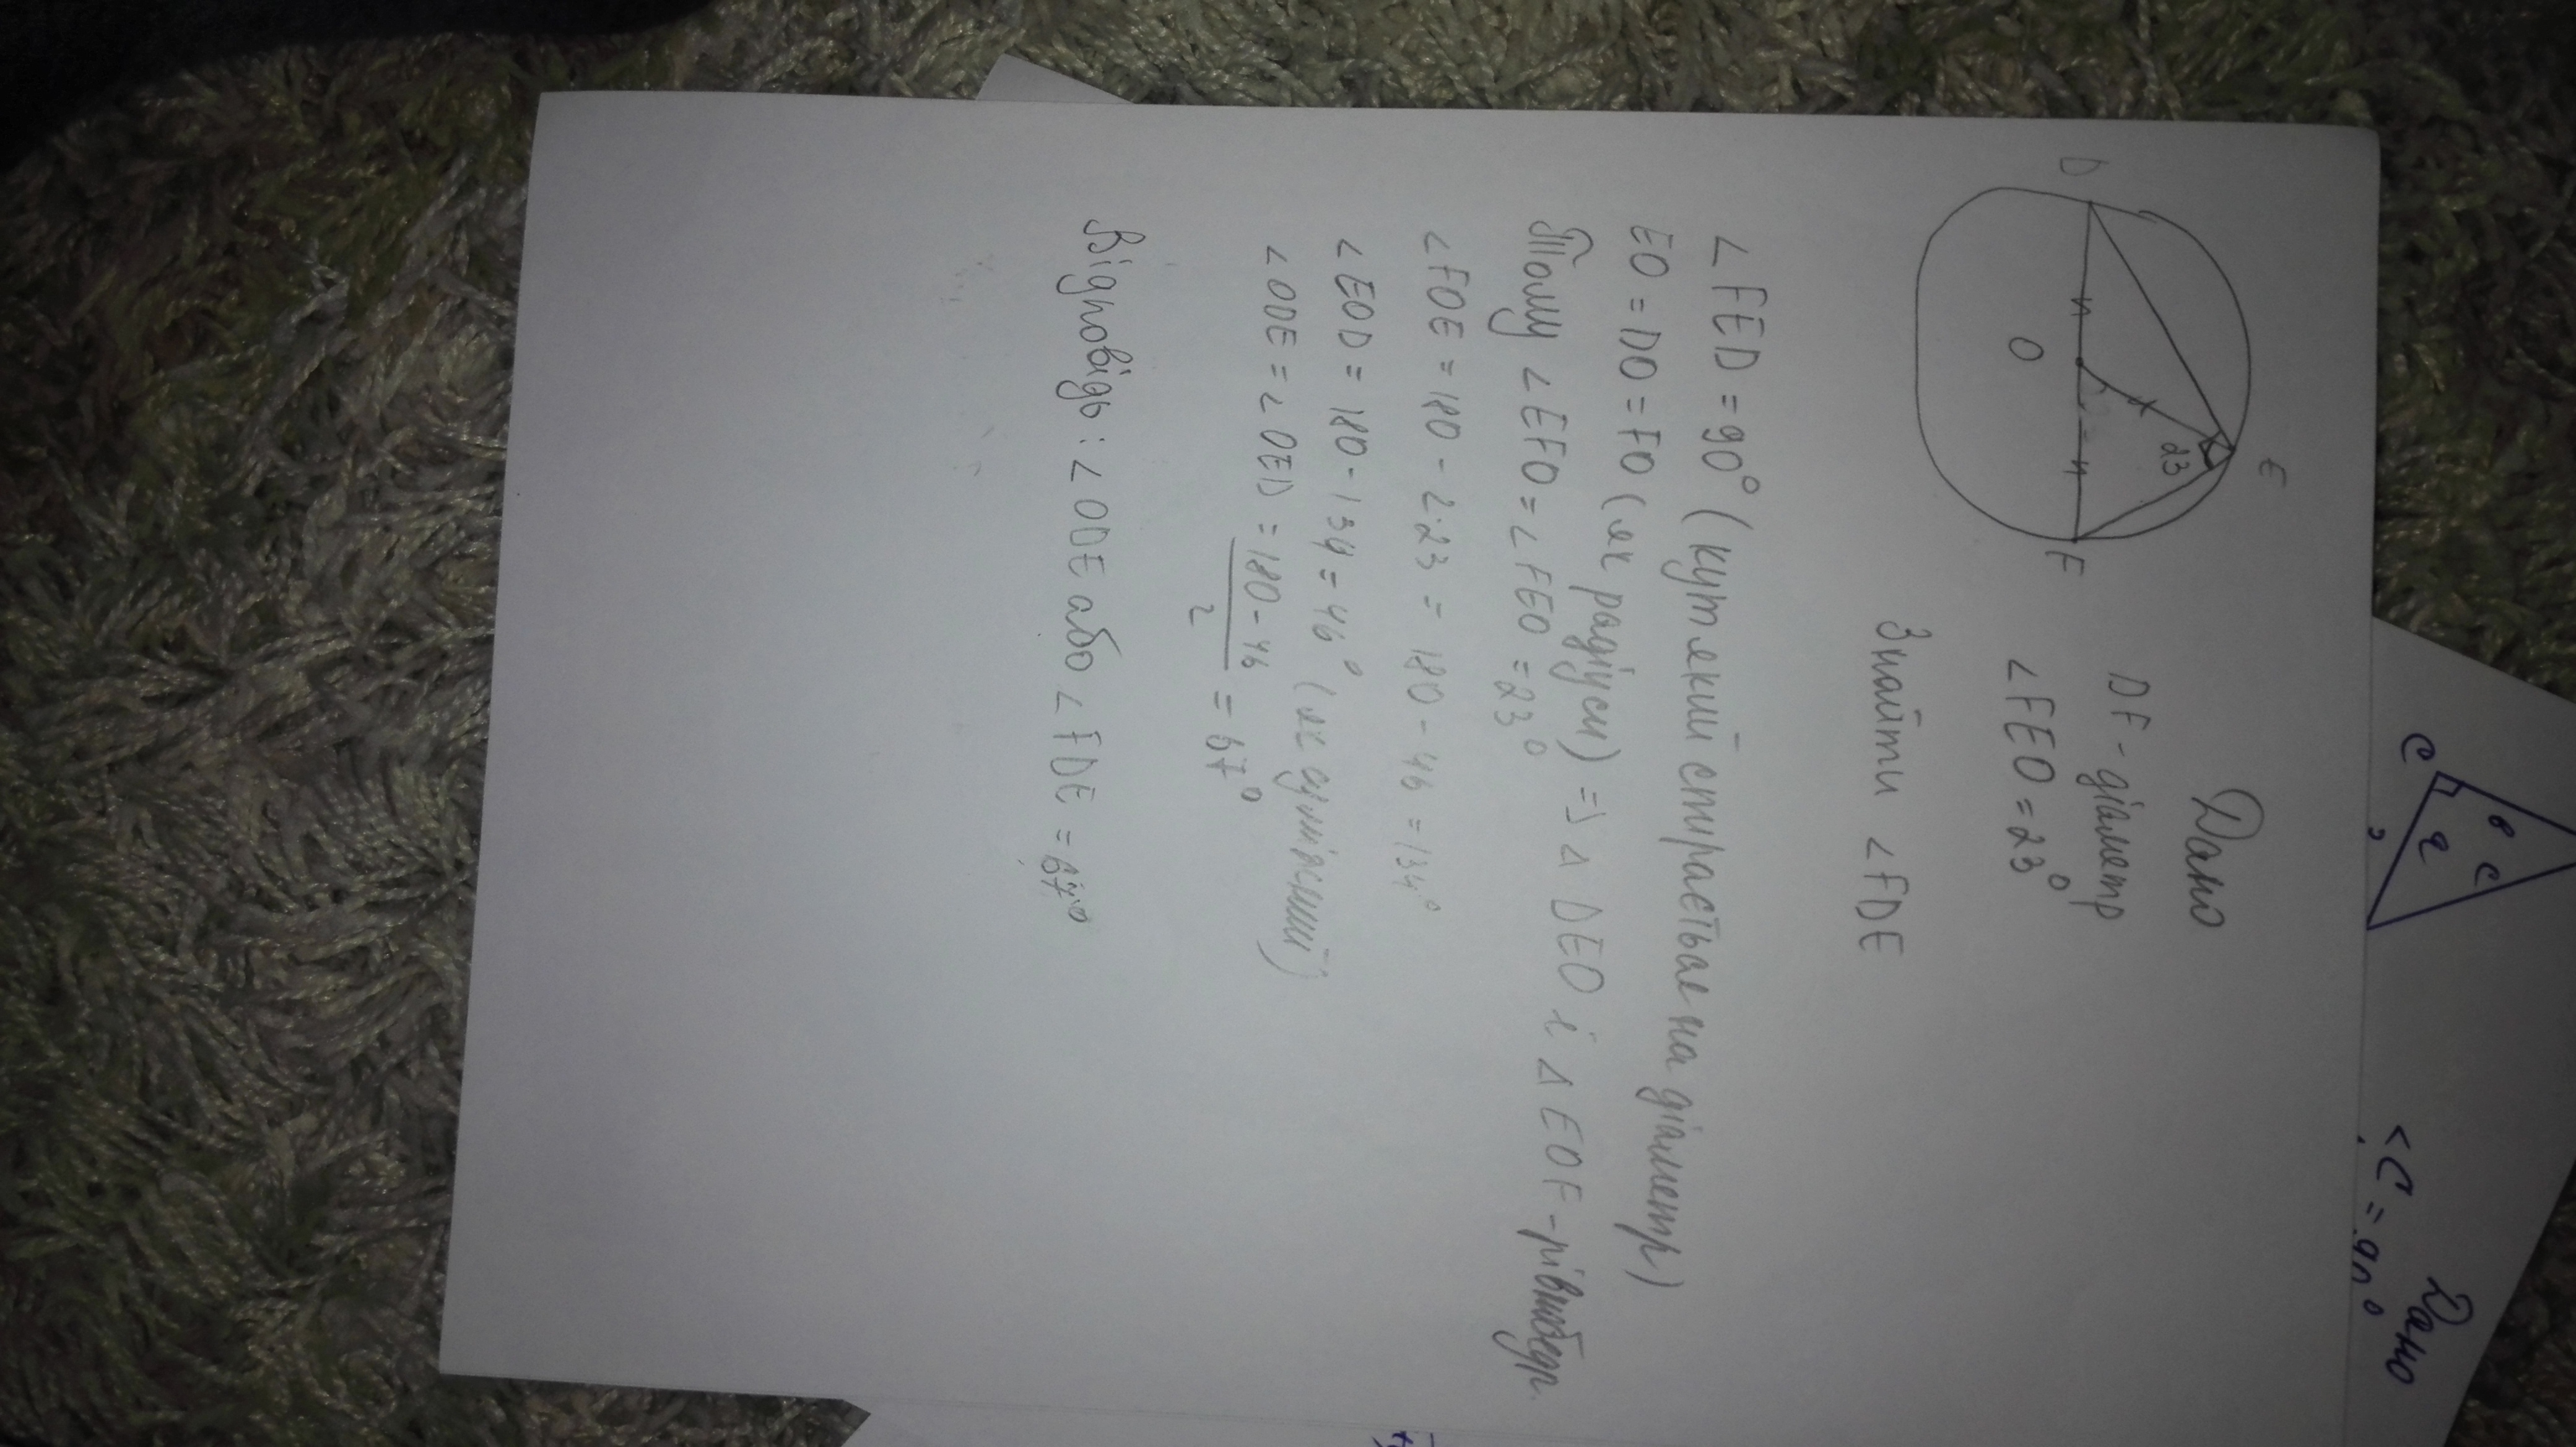 D
E
F
O
23
Дано
DF - діаметр
∠FEO = 23°
Знайти ∠FDE
∠FED = 90° (кут який спирається на діаметр)
EO = DO = FO (як радіуси) => △ DEO і △ EOF - рівнобедр.
Тому ∠EFO = ∠FEO = 23°
∠FOE = 180 - 2·23 = 180 - 46 = 134°
∠EOD = 180 - 134 = 46° (як суміжний)
∠ODE = ∠OED = 180 - 46 / 2 = 67°
Відповідь: ∠ODE або ∠FDE = 67°
C
a
c
Дано
<C = 90°